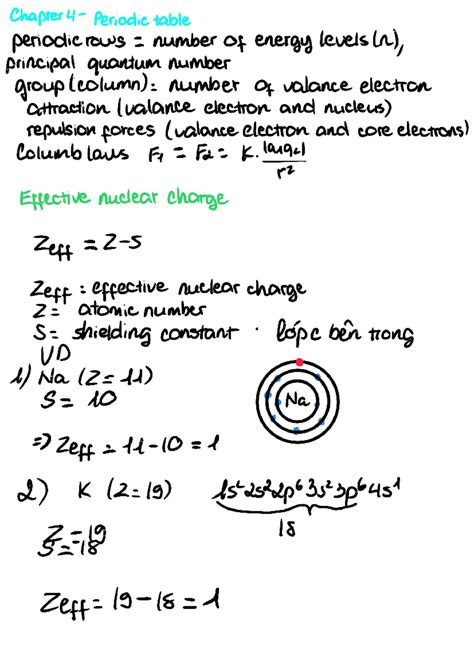 Chapter 4 - Periodic table
periodic rows = number of energy levels (n),
principal quantum number
group (column) = number of valance electron
attraction (valance electron and nucleus)
repulsion forces (valance electron and core electrons)
Columb laws F₁ = F₂ = K. |q₁q₂| / r²
Effective nuclear charge
Zeff = Z-S
Zeff = effective nuclear charge
Z = atomic number
S = shielding constant · lớp e bên trong
VD
1) Na (Z = 11)
S = 10
Na
=> Zeff = 11-10 = 1
2) K (Z=19) 1s²2s²2p⁶3s²3p⁶4s¹
18
Z = 19
S = 18
Zeff = 19 - 18 = 1